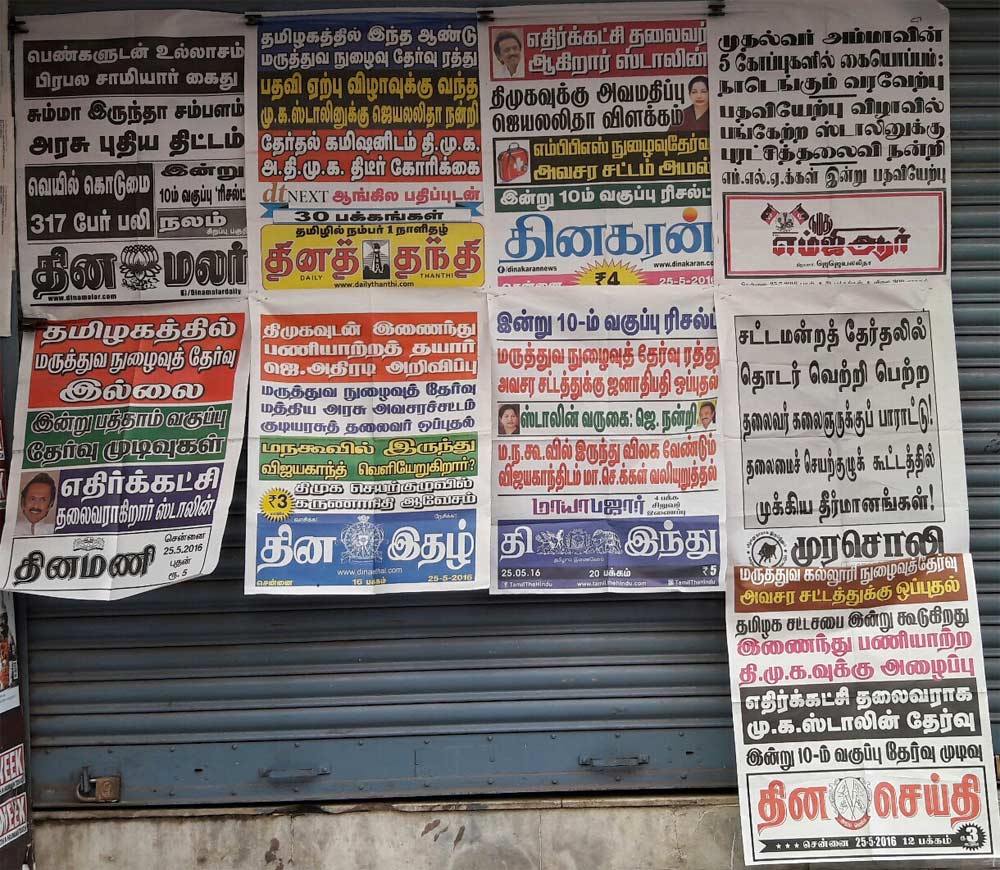 பெண்களுடன் உல்லாசம்
பிரபல சாமியார் கைது
சும்மா இருந்தா சம்பளம்
அரசு புதிய திட்டம்
வெயில் கொடுமை
317 பேர் பலி
இன்று
10ம் வகுப்பு 'ரிசல்ட்'
நலம்
சிறப்பு பகுதி
தின மலர்
www.dinamalar.com
/Dinamalardaily
தமிழகத்தில் இந்த ஆண்டு
மருத்துவ நுழைவு தேர்வு ரத்து
பதவி ஏற்பு விழாவுக்கு வந்த
மு.க.ஸ்டாலினுக்கு ஜெயலலிதா நன்றி
தேர்தல் கமிஷனிடம் தி.மு.க.
அ.தி.மு.க. திடீர் கோரிக்கை
dt NEXT ஆங்கில பதிப்புடன்
30 பக்கங்கள்
தமிழில் நம்பர் 1 நாளிதழ்
தினத் தந்தி
DAILY THANTHI
www.dailythanthi.com
எதிர்க்கட்சி தலைவர்
ஆகிறார் ஸ்டாலின்
திமுகவுக்கு அவமதிப்பு
ஜெயலலிதா விளக்கம்
எம்பிபிஎஸ் நுழைவுதேர்வு
அவசர சட்டம் அமல்
இன்று 10ம் வகுப்பு ரிசல்ட்
தினகரன்
/dinakarannews
www.dinakaran.co
சென்னை ₹4 25-5-2016
முதல்வர் அம்மாவின்
5 கோப்புகளில் கையொப்பம்:
நாடெங்கும் வரவேற்பு
பதவியேற்பு விழாவில்
பங்கேற்ற ஸ்டாலினுக்கு
புரட்சித்தலைவி நன்றி
எம்.எல்.ஏ.க்கள் இன்று பதவியேற்பு
எம்ஜிஆர்
தமிழகத்தில்
மருத்துவ நுழைவுத் தேர்வு
இல்லை
இன்று பத்தாம் வகுப்பு
தேர்வு முடிவுகள்
எதிர்க்கட்சி
தலைவராகிறார் ஸ்டாலின்
தினமணி
சென்னை
25.5.2016
புதன்
ரூ. 5
திமுகவுடன் இணைந்து
பணியாற்றத் தயார்
ஜெ.அதிரடி அறிவிப்பு
மருத்துவ நுழைவுத் தேர்வு
மத்திய அரசு அவசரச்சட்டம்
குடியரசுத் தலைவர் ஒப்புதல்
மநகூவில் இருந்து
விஜயகாந்த் வெளியேறுகிறார்?
திமுக செயற்குழுவில்
கருணாநிதி ஆவேசம்
₹3
தின இதழ்
சென்னை
16 பக்கம்
25-5-2016
இன்று 10-ம் வகுப்பு ரிசல்ட்
மருத்துவ நுழைவுத் தேர்வு ரத்து
அவசர சட்டத்துக்கு ஜனாதிபதி ஒப்புதல்
ஸ்டாலின் வருகை: ஜெ. நன்றி
ம.ந.கூ.வில் இருந்து விலக வேண்டும்
விஜயகாந்திடம் மா.செ.க்கள் வலியுறுத்தல்
மாயாபஜார்
4 பக்க
சிறுவர்
இணைப்பு
தி இந்து
25.05.16
20 பக்கம்
₹5
TamilTheHindu
www.tamil.thehindu.com
TamilTheHindu
சட்டமன்றத் தேர்தலில்
தொடர் வெற்றி பெற்ற
தலைவர் கலைஞருக்குப் பாராட்டு!
தலைமைச் செயற்குழுக் கூட்டத்தில்
முக்கிய தீர்மானங்கள்!
முரசொலி
மருத்துவ கல்லூரி நுழைவுத்தேர்வு
அவசர சட்டத்துக்கு ஒப்புதல்
தமிழக சட்டசபை இன்று கூடுகிறது
இணைந்து பணியாற்ற
தி.மு.க.வுக்கு அழைப்பு
எதிர்க்கட்சி தலைவராக
மு.க.ஸ்டாலின் தேர்வு
இன்று 10-ம் வகுப்பு தேர்வு முடிவு
தின செய்தி
சென்னை 25-5-2016 12 பக்கம்
3
WEEK
WEEK